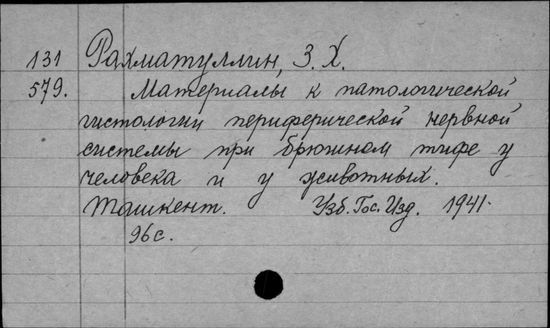 131 Рахматуллин, З. Х.
579. Материалы к патологической
гистологии периферической нервной
системы при брюшном тифе у
человека и у животных.
Ташкент. Узб. Гос. Изд. 1941.
96 с.